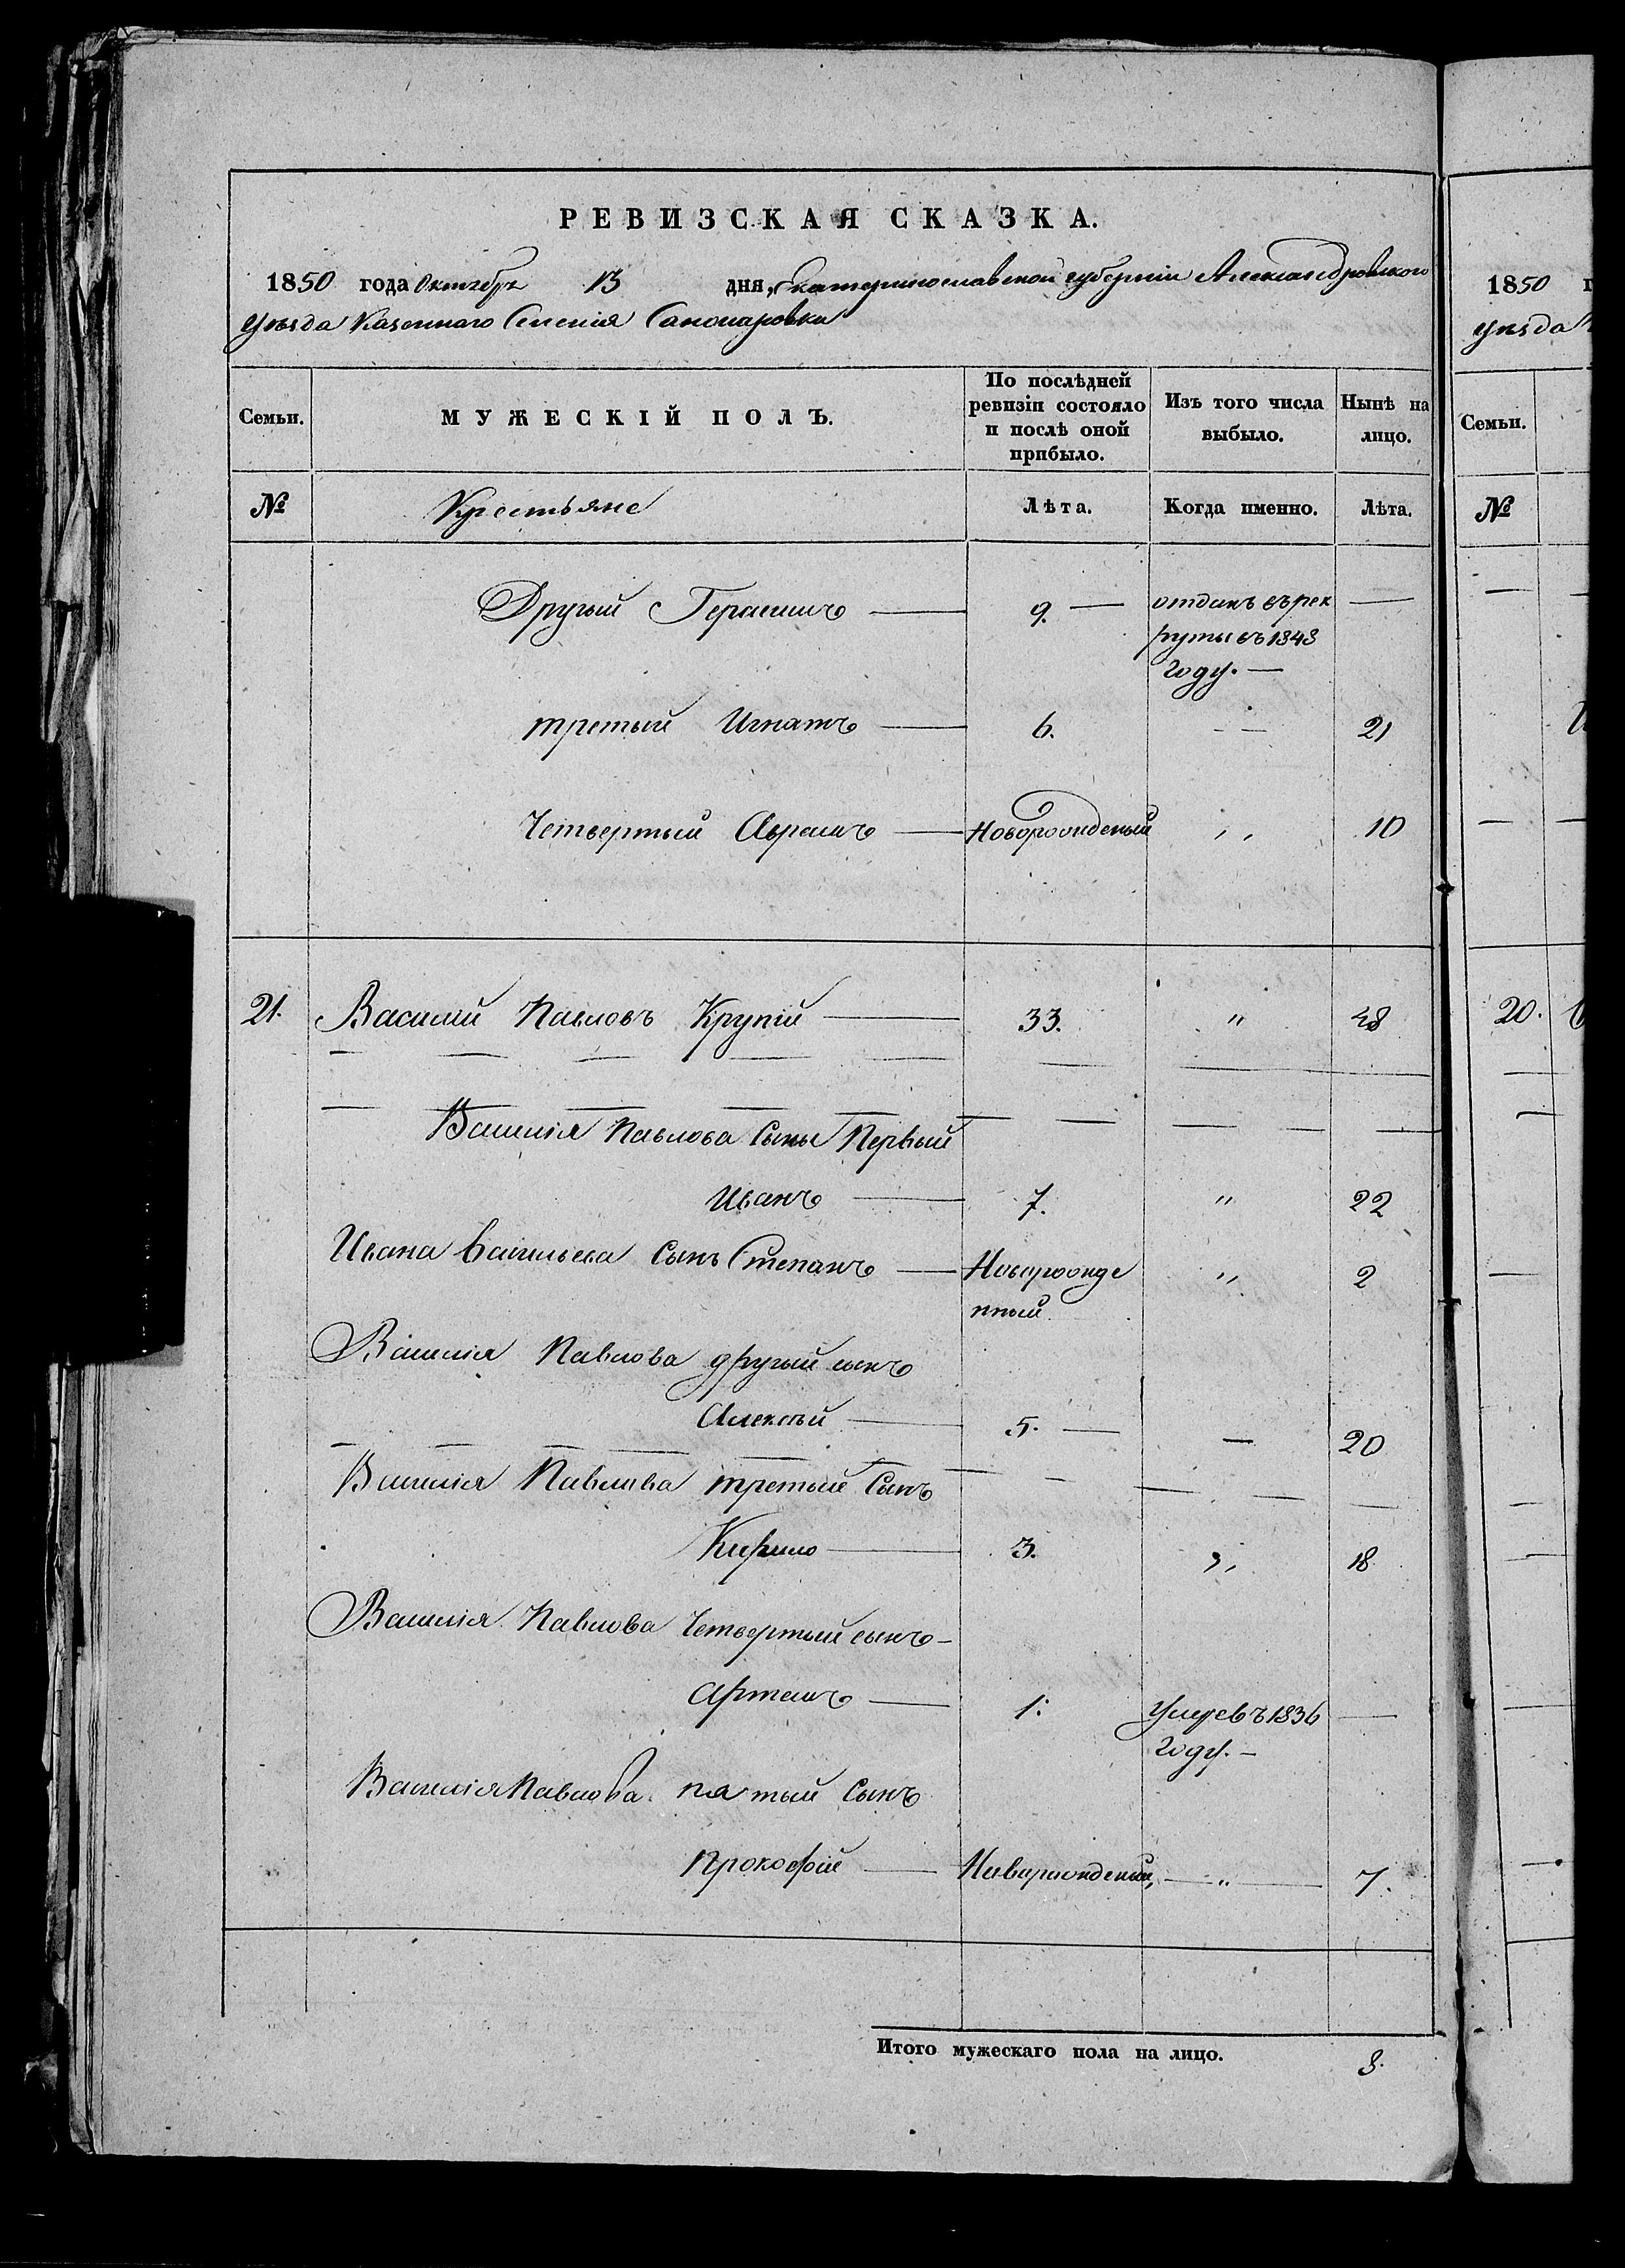 РЕВИЗСКАЯ СКАЗКА.
1850 года Октября 13 дня, Екатеринославской губерніи Александровского
уѣзда Казенного Селенія Санжаровки
Семьи.
МУЖЕСКІЙ ПОЛЪ.
По послѣдней ревизіи состояло и послѣ оной прибыло.
Изъ того числа выбыло.
Нынѣ на лицо.
№ Крестьяне Лѣта. Когда именно. Лѣта.
Другий Герасимъ — 9. — отданъ въ рек —
руты въ 1848
году. —
третий Игнатъ — 6. — — 21
Четвертый Аврамъ — Новорожденый „ 10
21. Василий Павловъ Крупій — 33. " 48
Василія Павлова Сыны Первый
Иванъ — 7. " 22
Ивана Васильева Сынъ Степанъ — Новорожде " 2
нный
Василія Павлова другий сынъ
Алексѣй — 5. — — 20
Василія Павлова третий Сынъ
Кирило — 3. „ 18
Василія Павлова Четвертый сынъ —
Артемъ — 1. Умре въ 1836 —
году. —
Василія Павлова пятый Сынъ
Прокофій — Новорожденый, — " — 7.
Итого мужескаго пола на лицо. 8.
1850 г
уѣзда
Семьи.
№
20.